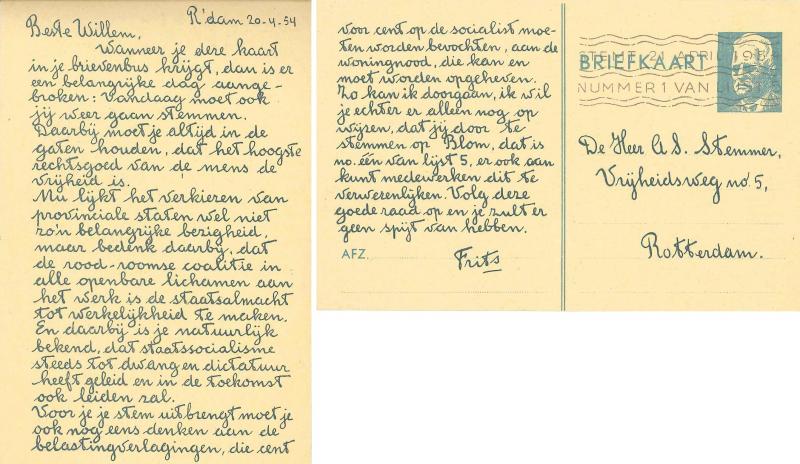 R'dam 20-4-54
Beste Willem,
Wanneer je deze kaart
in je brievenbus krijgt, dan is er
een belangrijke dag aange-
broken: Vandaag moet ook
jij weer gaan stemmen.
Daarbij moet je altijd in de
gaten houden, dat het hoogste
rechtsgoed van de mens de
vrijheid is.
Nu lijkt het verkiezen van
provinciale staten wel niet
zo'n belangrijke bezigheid,
maar bedenk daarbij, dat
de rood-roomse coalitie in
alle openbare lichamen aan
het werk is de staatsalmacht
tot werkelijkheid te maken.
En daarbij is je natuurlijk
bekend, dat staatssocialisme
steeds tot dwang en dictatuur
heeft geleid en in de toekomst
ook leiden zal.
Voor je je stem uitbrengt moet je
ook nog eens denken aan de
belastingverlagingen, die cent
voor cent op de socialist moe-
ten worden bevochten, aan de
woningnood, die kan en
moet worden opgeheven.
Zo kan ik doorgaan, ik wil
je echter er alleen nog op
wijzen, dat jij door te
stemmen op Blom, dat is
no. één van lijst 5, er ook aan
kunt medewerken dit te
verwezenlijken. Volg deze
goede raad op en je zult er
geen spijt van hebben.
AFZ. Frits
STEMT 21 APRIL 195
BRIEFKAART
NUMMER 1 VAN LIJST
De Heer A.S. Stemmer,
Vrijheidsweg no 5,
Rotterdam.